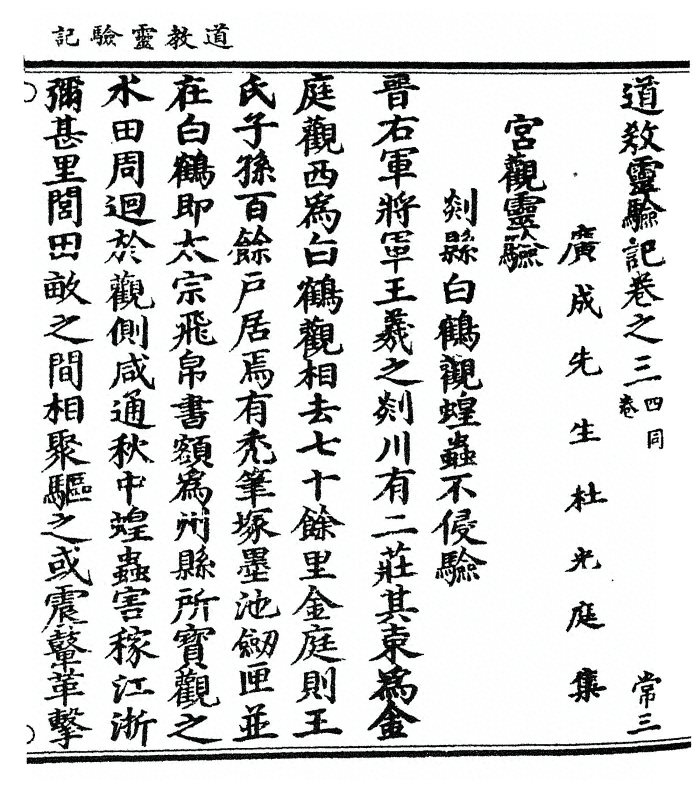 道教靈驗記
道教靈驗記卷之三 四同卷 常三
廣成先生杜光庭集
宮觀靈驗
剡縣白鶴觀蝗蟲不侵驗
晉右軍將軍王羲之剡川有二莊其東為金
庭觀西為白鶴觀相去七十餘里金庭則王
氏子孫百餘戶居焉有禿筆塚墨池劒匣並
在白鶴即太宗飛帛書額為州縣所寶觀之
水田周迴於觀側咸通秋中蝗蟲害稼江浙
彌甚里閭田畝之間相聚驅之或震鼙革擊